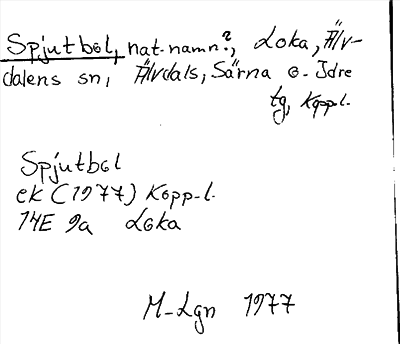 Spjutbol, nat.namn?, Loka, Älv-
dalens sn, Älvdals, Särna o. Idre
tg, Kopp.l.
Spjutbol
ek (1977) Kopp-l.
14E 9a Loka
M-Lgn 1977